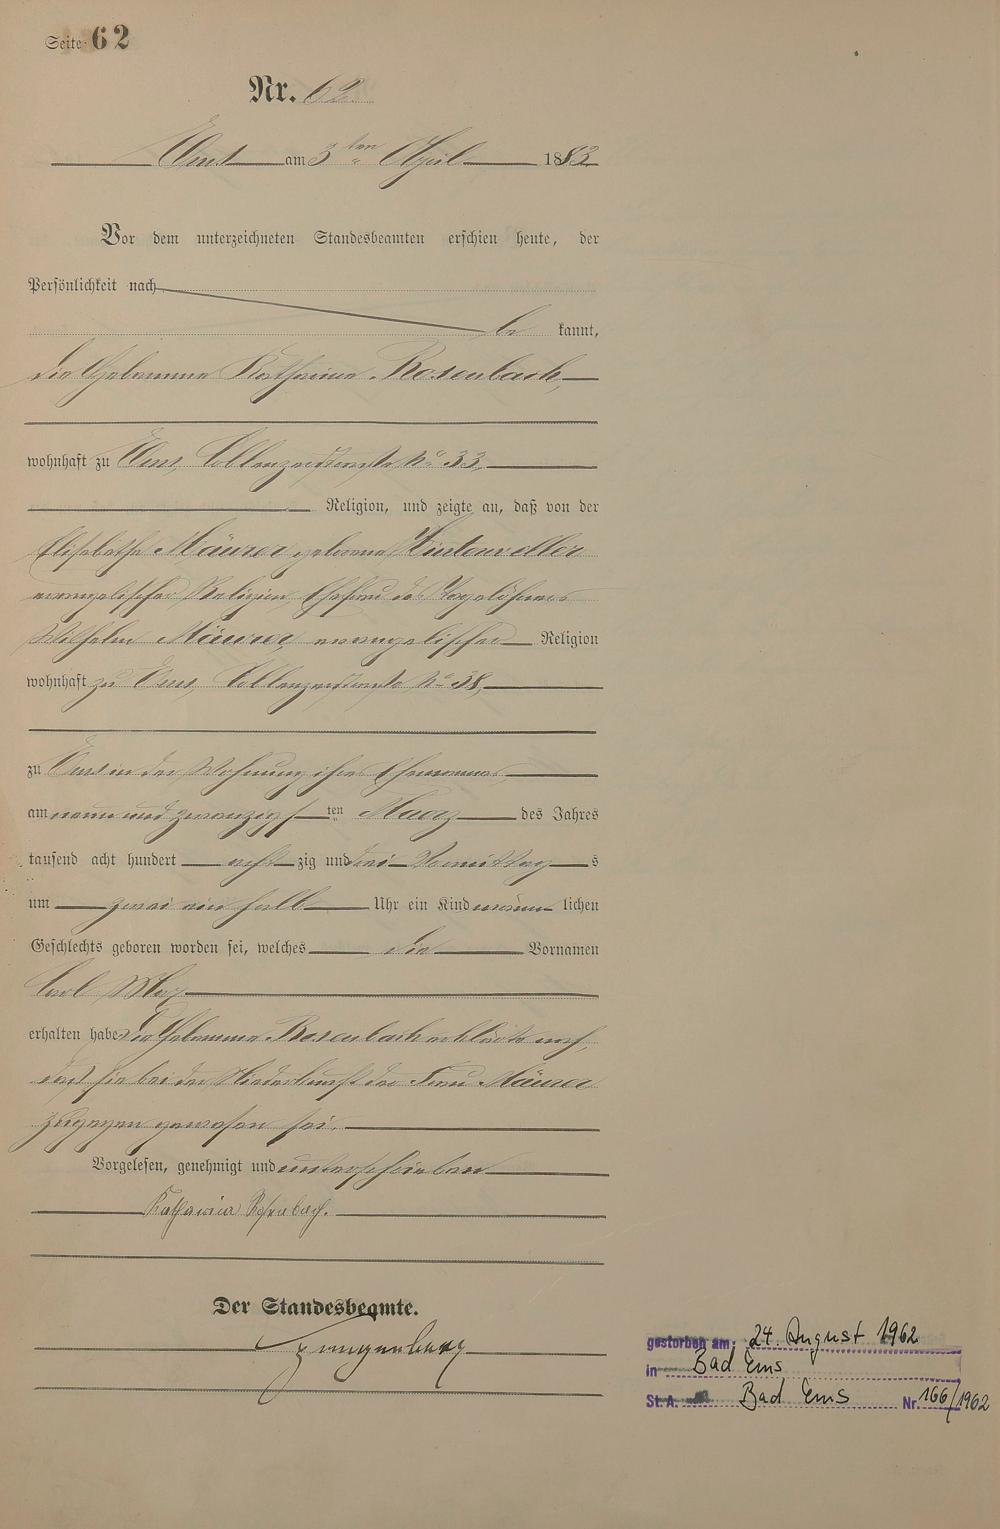 Seite 62
Nr. 62.
Ems am 3ten April 1883
Vor dem unterzeichneten Standesbeamten erschien heute, der
Persönlichkeit nach
be kannt,
die Hebamme Katharina Rosenbach,
wohnhaft zu Ems, Coblenzerstraße No 33,
Religion, und zeigte an, daß von der
Elisabethe Mäurer geborene
evangelischer Religion, Ehefrau des Tagelöhners
Wilhelm Mäurer, evangelischer Religion
wohnhaft zu Ems, Coblenzerstraße No 38,
zu Ems in der Wohnung ihres Ehemannes,
am neun und zwanzigsten Maerz des Jahres
tausend acht hundert acht zig und drei Vormittags
um zwei ein halb Uhr ein Kind männlichen
Geschlechts geboren worden sei, welches die Vornamen
Carl Max
erhalten habe. Die Hebamme Rosenbach erklärte noch,
daß sie bei der Niederkunft der Frau Mäurer
zugegen gewesen sei.
Vorgelesen, genehmigt und unterschrieben
Katharina Rosenbach.
Der Standesbeamte.
gestorben am: 24. August 1962
in Bad Ems
St. A. Bad Ems Nr. 166/1962